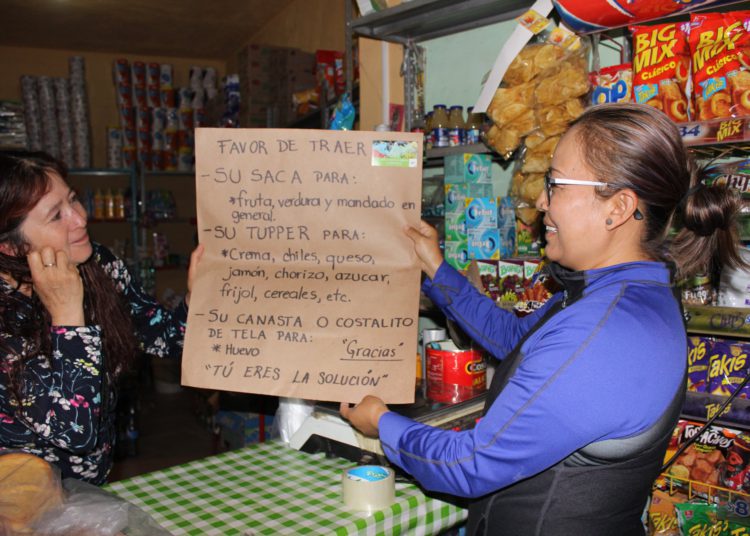 FAVOR DE TRAER
- SU SACA PARA:
* fruta, verdura y mandado en
general.
- SU TUPPER PARA:
* Crema, chiles, queso,
jamón, chorizo, azucar,
frijol, cereales, etc.
- SU CANASTA O COSTALITO
DE TELA PARA:
* Huevo
"Gracias"
"TÚ ERES LA SOLUCIÓN"
BIG
MIX
CLÁSICO
BIG
MIX
BIG
MIX
Takis
Takis